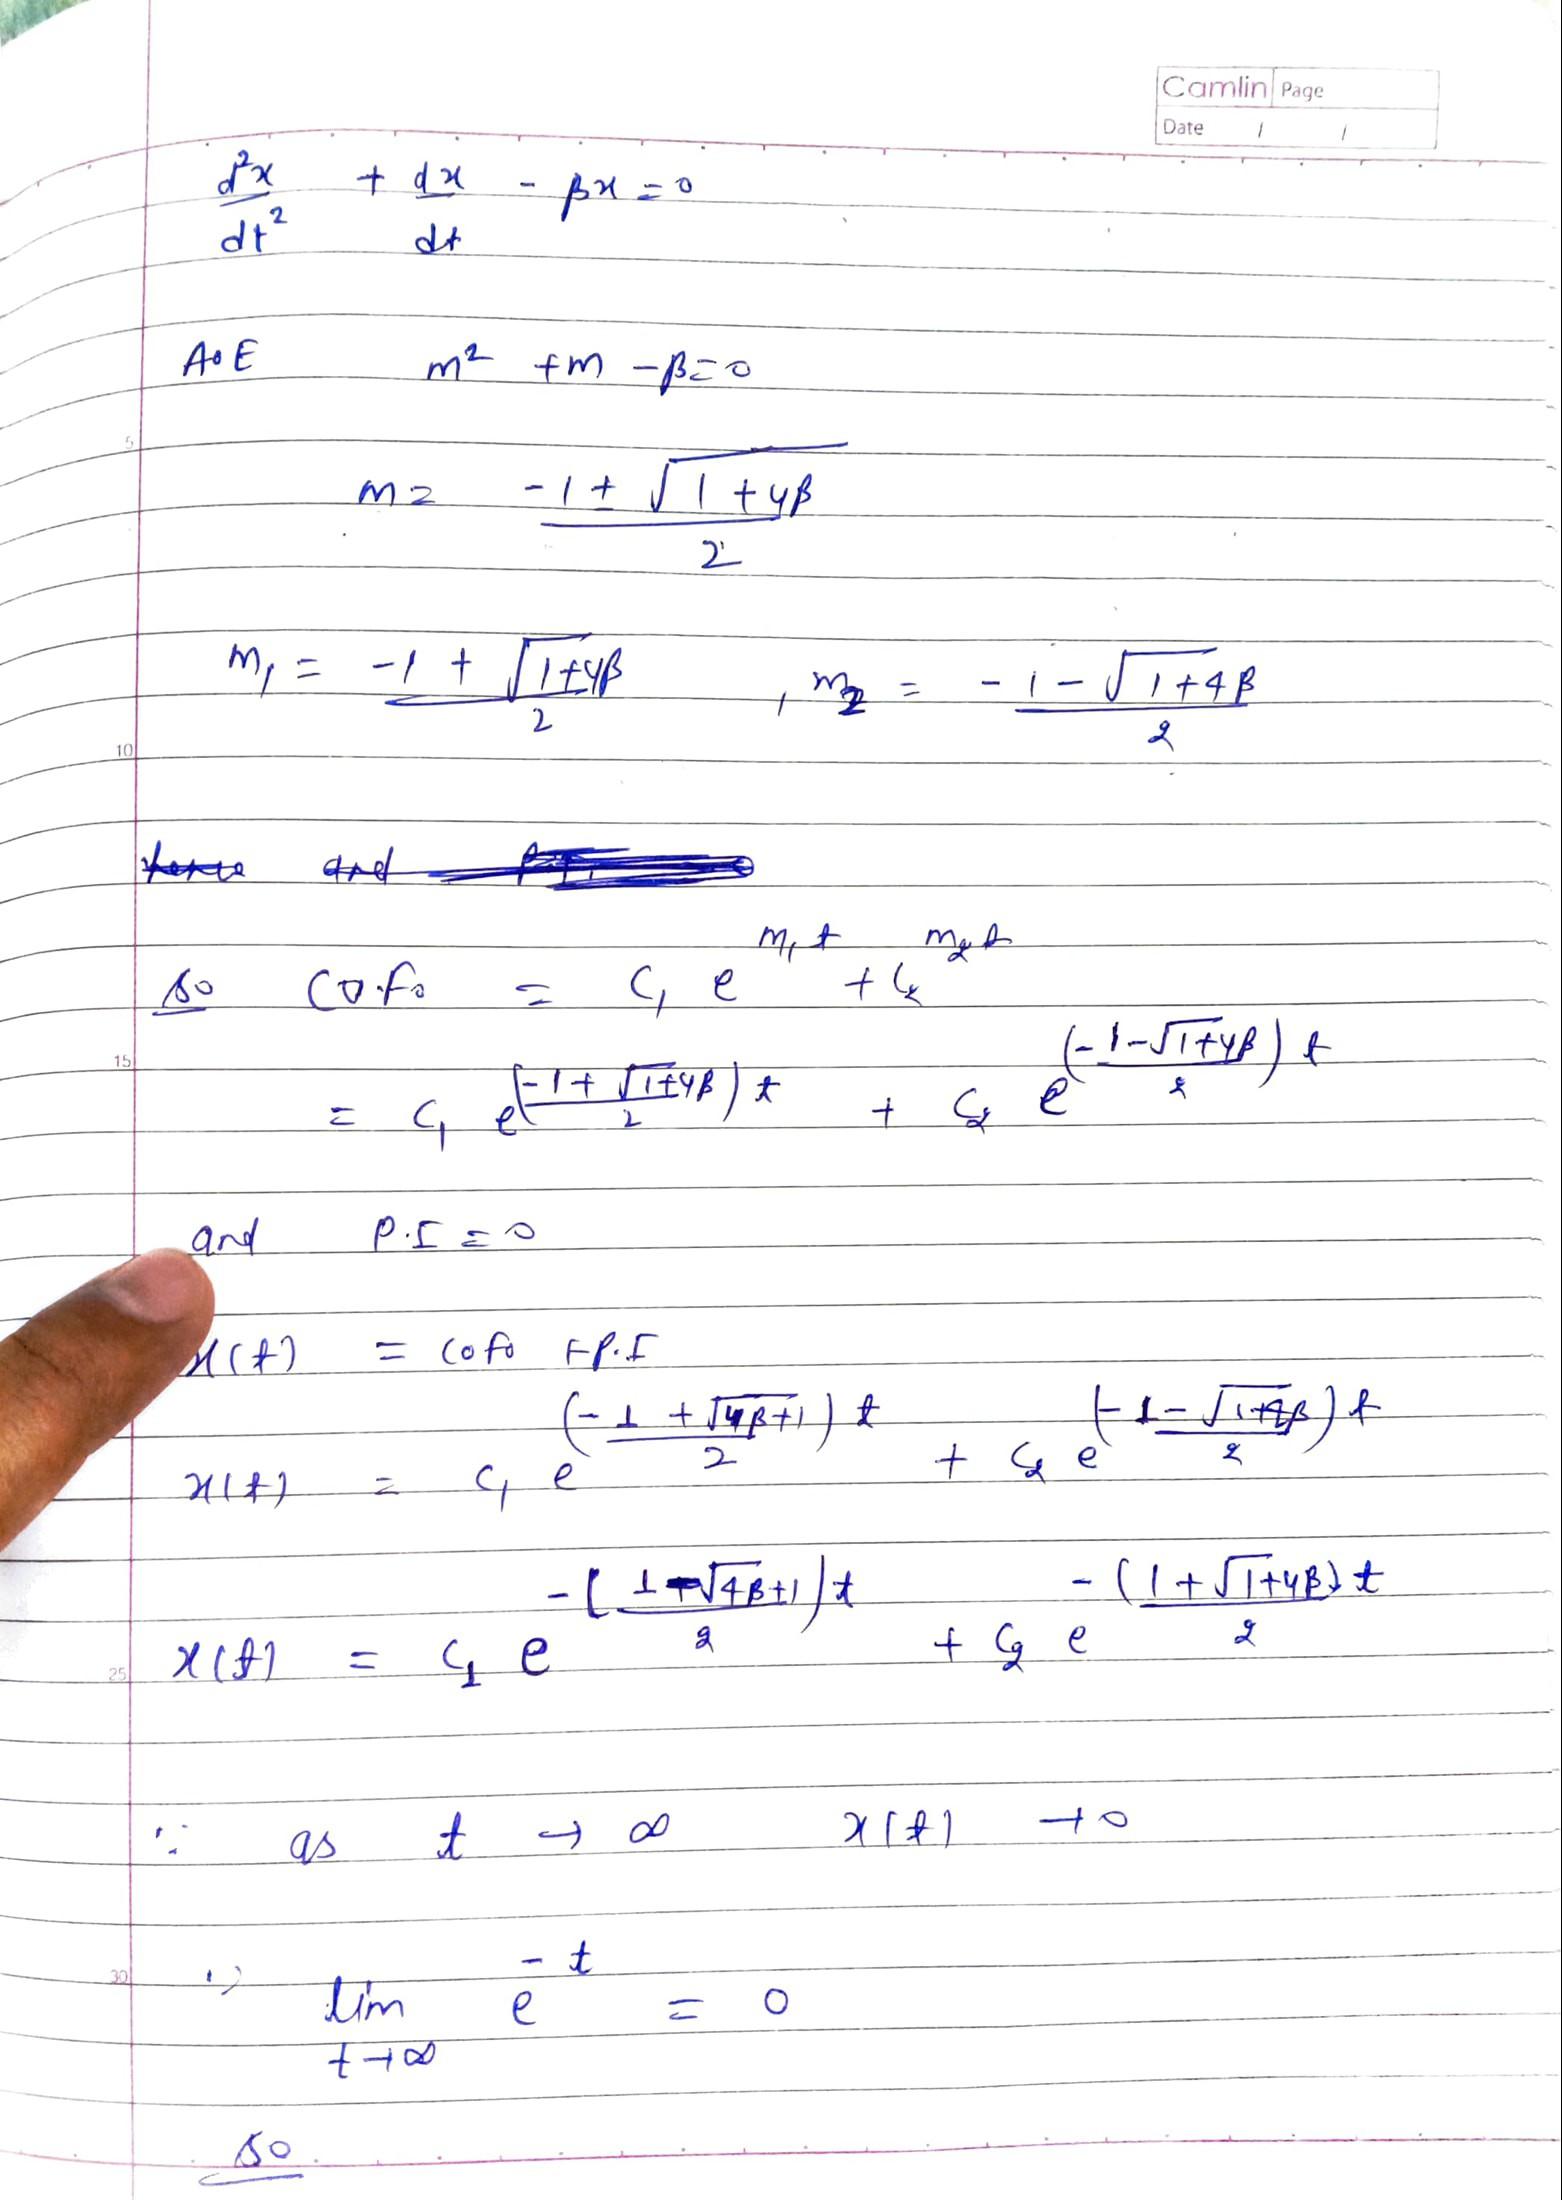 Camlin Page
Date / /
d²x/dt² + dx/dt - βx = 0
A.E m² + m - β = 0
5
m = (-1 ± √(1+4β))/2
m₁ = (-1 + √(1+4β))/2 , m₂ = (-1 - √(1+4β))/2
10
and
so C.F. = C₁ e^(m₁t) + C₂ ^(m₂t)
15
= C₁ e^((-1+√(1+4β))/2)t + C₂ e^((-1-√(1+4β))/2)t
and P.I = 0
x(t) = C.F. + P.I
x(t) = C₁ e^((-1+√(4β+1))/2)t + C₂ e^((-1-√(1+4β))/2)t
x(t) = C₁ e^-((1-√(4β+1))/2)t + C₂ e^-((1+√(1+4β))/2)t
25
∵ as t → ∞ x(t) → 0
30
lim t→∞ e^-t = 0
so